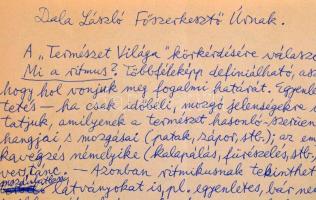 Dala László Főszerkesztő Úrnak.
A „Természet Világa" körkérdésére válaszo
Mi a ritmus? Többféleképp definiálható, as
hogy hol vonjuk meg fogalmi határát. Egyenle
tetés – ha csak időbeli, mozgó jelenségekre
tatjuk, amilyenek a természet hasonló-szerűen
hangjai s mozgásai (patak, zápor, stb.); az em
kavégzés némelyike (kalapálás, fűrészelés, stb.
vers, tánc. – Azonban ritmikusnak tekinthet
mozdulatlan
látványokat is, pl. egyenletes, bár nem